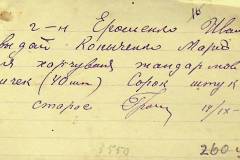 16
г-н Ерошенко Ива
видай Кониченко Маріо
ля харчування жандармов
ичек (40 шт) Сорок штук
староc
19/IX
3550
260